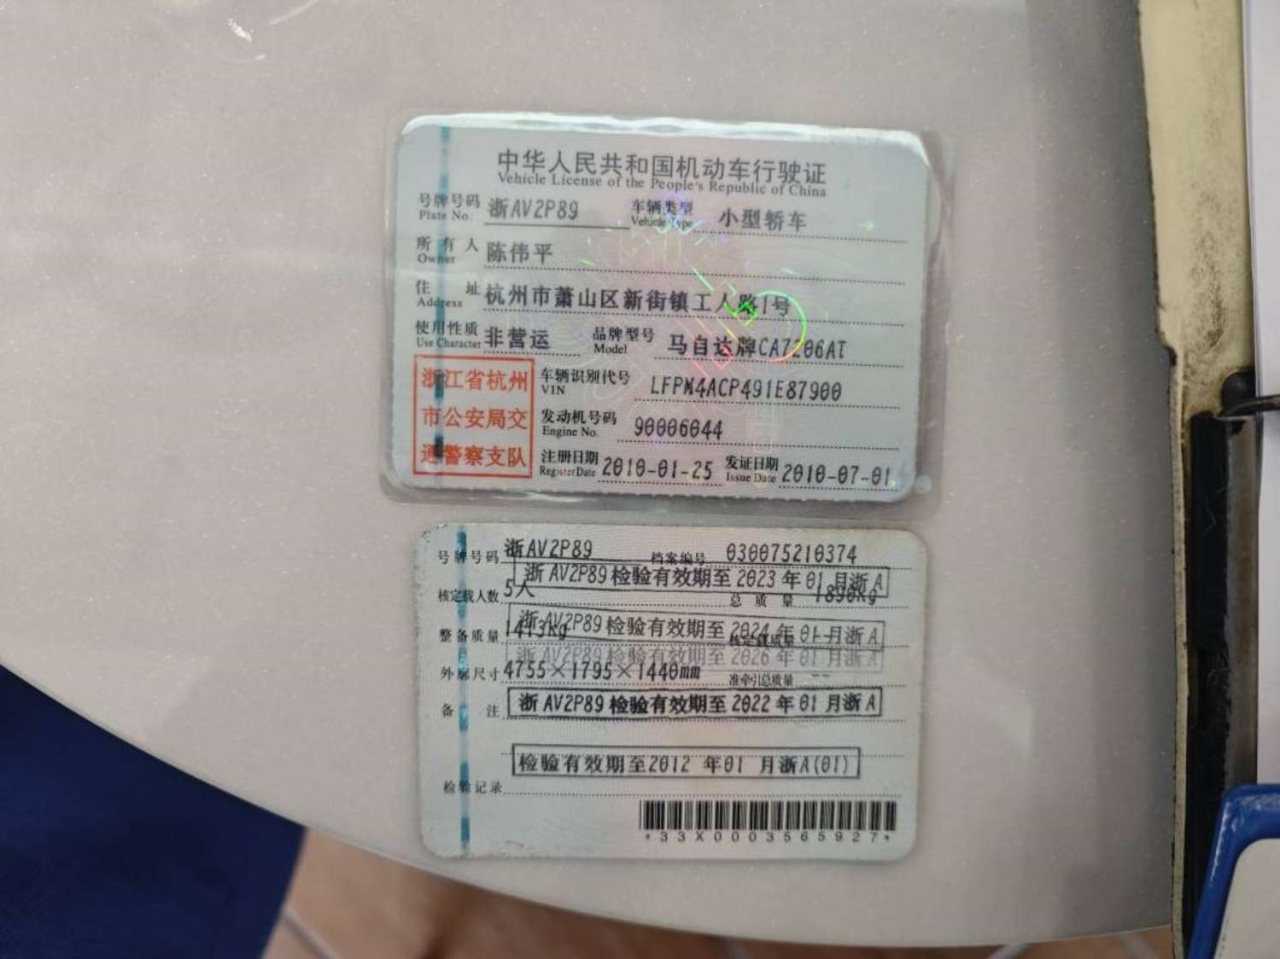 中华人民共和国机动车行驶证
Vehicle License of the People's Republic of China
号牌号码 浙AV2P89 车辆类型 小型轿车
Plate No. Vehicle Type
所有人 陈伟平
Owner
住址 杭州市萧山区新街镇工人路1号
Address
使用性质 非营运 品牌型号 马自达牌CA7206AT
Use Character Model
浙江省杭州
市公安局交
通警察支队
车辆识别代号 LFPM4ACP491E87900
VIN
发动机号码 90006044
Engine No.
注册日期 2010-01-25 发证日期 2010-07-01
Register Date Issue Date
号牌号码 浙AV2P89 档案编号 030075210374
浙AV2P89检验有效期至2023年01月浙A
核定载人数 5人 总质量 1890kg
浙AV2P89检验有效期至2024年01月浙A
整备质量 1413kg 核定载质量
浙AV2P89检验有效期至2026年01月浙A
外廓尺寸 4755×1795×1440mm 准牵引总质量 --
备注 浙AV2P89检验有效期至2022年01月浙A
检验有效期至2012年01月浙A(01)
检验记录
*33X0003565927*